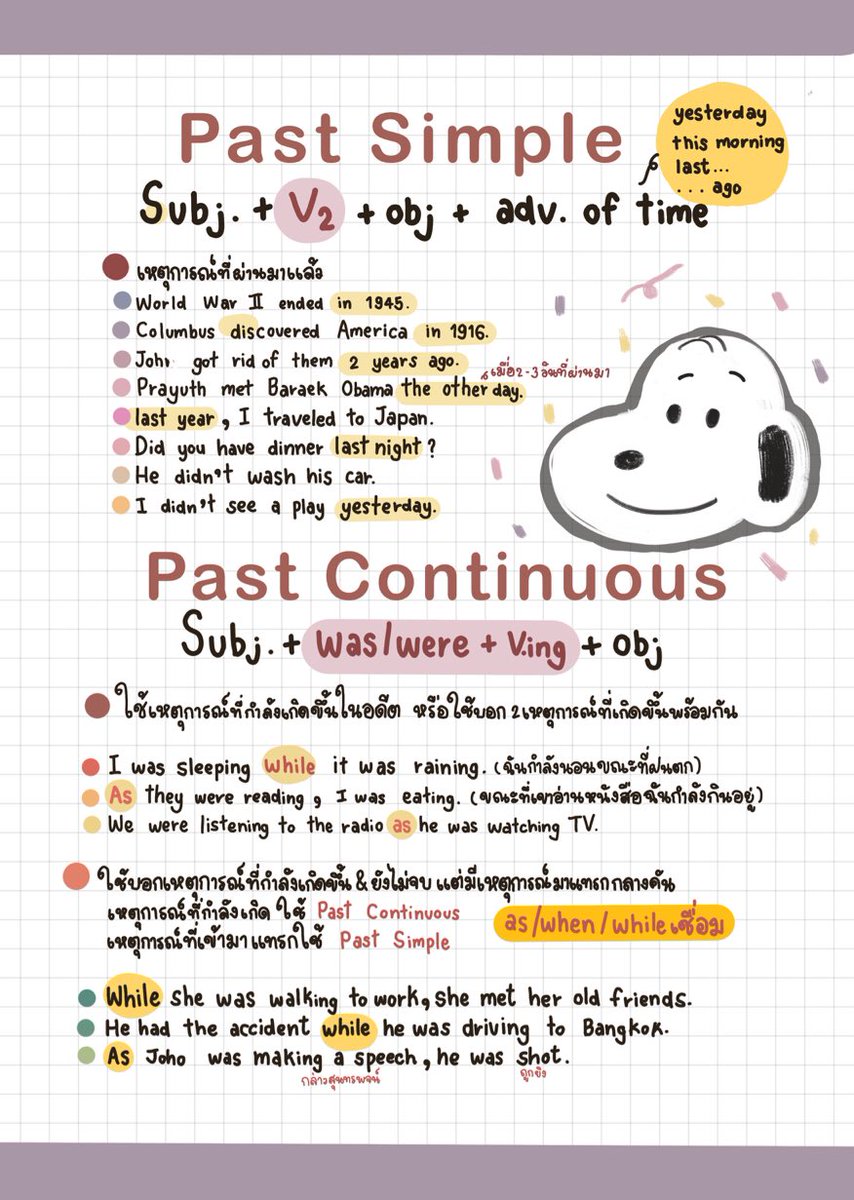 Past Simple
yesterday
this morning
last...
... ago
Subj. + V2 + obj + adv. of time
เหตุการณ์ที่ผ่านมาแล้ว
World War II ended in 1945.
Columbus discovered America in 1916.
John got rid of them 2 years ago.
เมื่อ 2-3 วันที่ผ่านมา
Prayuth met Baraek Obama the other day.
last year, I traveled to Japan.
Did you have dinner last night?
He didn't wash his car.
I didn't see a play yesterday.
Past Continuous
Subj. + was/were + V.ing + obj
ใช้เหตุการณ์ที่กำลังเกิดขึ้นในอดีต หรือใช้บอก 2 เหตุการณ์ที่เกิดขึ้นพร้อมกัน
I was sleeping while it was raining. (ฉันกำลังนอนขณะที่ฝนตก)
As they were reading, I was eating. (ขณะที่เขาอ่านหนังสือฉันกำลังกินอยู่)
We were listening to the radio as he was watching TV.
ใช้บอกเหตุการณ์ที่กำลังเกิดขึ้น & ยังไม่จบ แต่มีเหตุการณ์มาแทรกกลางคัน
เหตุการณ์ที่กำลังเกิด ใช้ Past Continuous
as/when/while เชื่อม
เหตุการณ์ที่เข้ามาแทรกใช้ Past Simple
While she was walking to work, she met her old friends.
He had the accident while he was driving to Bangkok.
As Joho was making a speech, he was shot.
กล่าวสุนทรพจน์ ถูกยิง